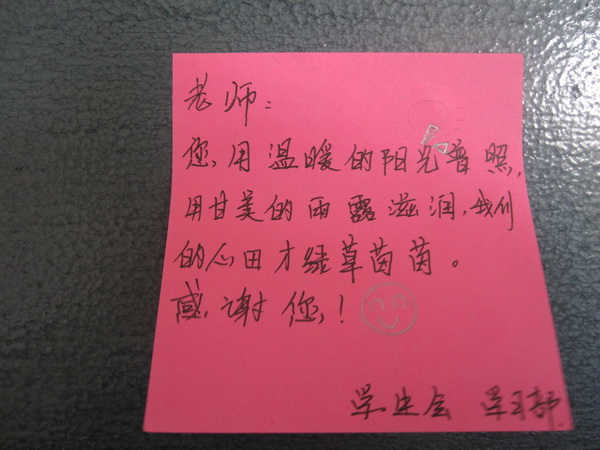 老师：
您,用温暖的阳光普照,
用甘美的雨露滋润,我们
的心田才绿草茵茵。
感谢您,！
学生会 学习部